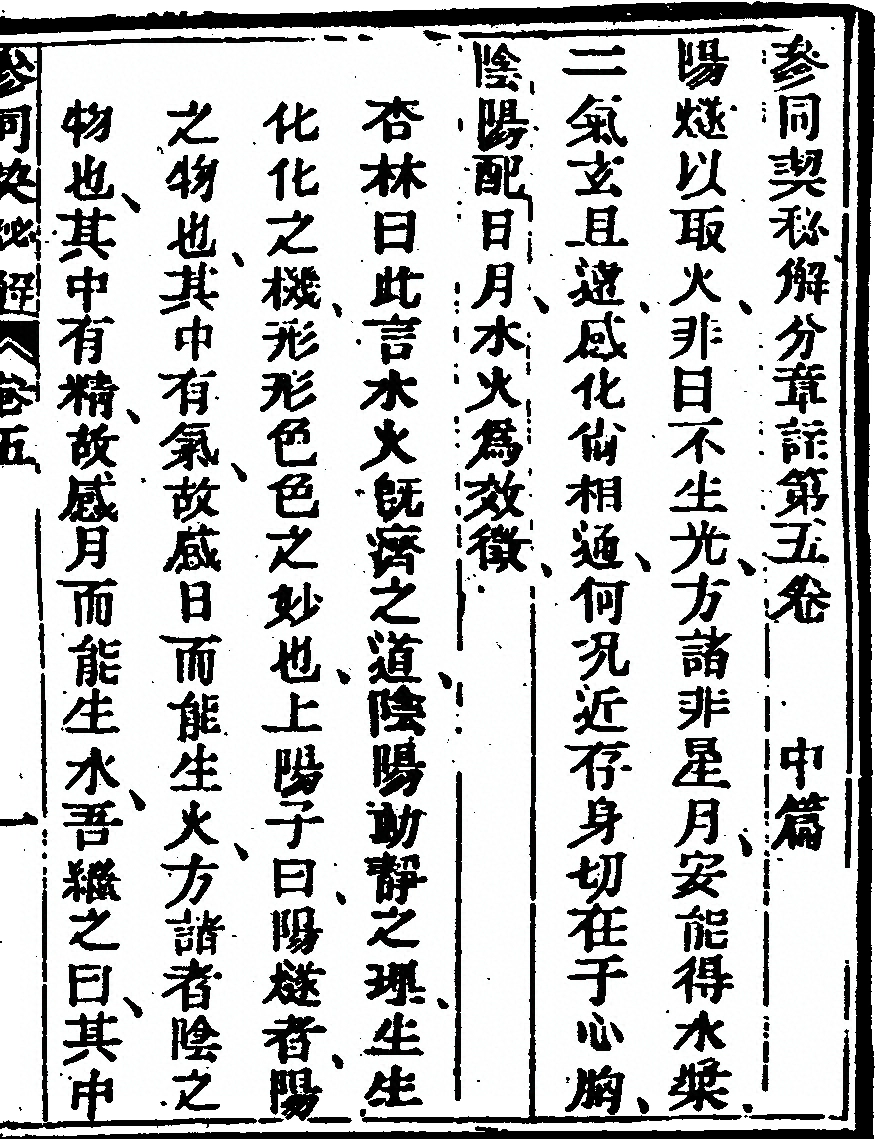 參同契秘解分章註第五卷　中篇
陽燧以取火、非日不生光、方諸非星月、安能得水槳、
二氣玄且遠、感化尙相通、何況近存身切在于心胸、
陰陽配日月、水火爲效徵、
杏林曰此言水火旣濟之道、陰陽動靜之理、生生
化化之機、形形色色之妙也、上陽子曰、陽燧者、陽
之物也、其中有氣、故感日而能生火、方諸者陰之
物也、其中有精、故感月而能生水、吾繼之曰、其中
參同契秘解 卷五 一